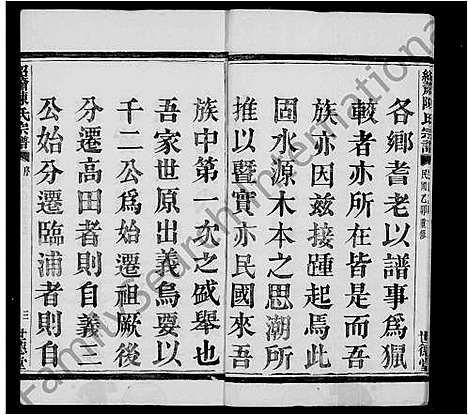 紹蕭陳氏宗譜
民國乙卯重修
世德堂
各鄉耆老以譜事為猵
較者亦所在皆是而是
族亦因兹接踵起焉此
固水源木本之思潮所
推以暨實亦民國來吾
族中第一次之盛舉也
吾家世原出義烏要以
千二公為始遷祖厥後
分遷高田者則自義三
公始分遷臨浦者則自
紹蕭陳氏宗譜
序
三
世德堂
FamilySearch International